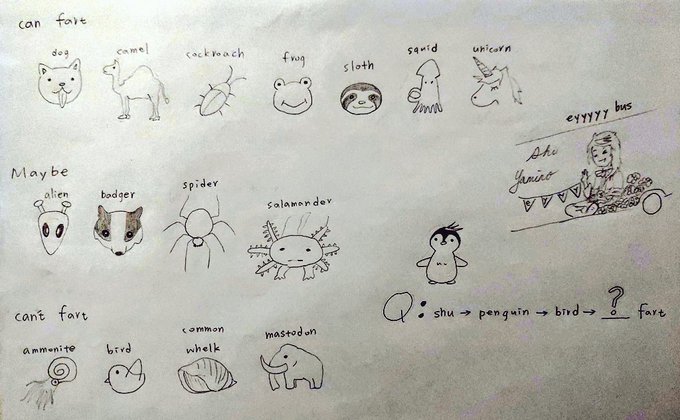 can fart
dog camel cockroach frog sloth squid unicorn
eyyyyy bus
Shu
Yamino
Maybe
alien badger spider salamander
Q: shu → penguin → bird → ? fart
can't fart
ammonite bird common whelk mastodon